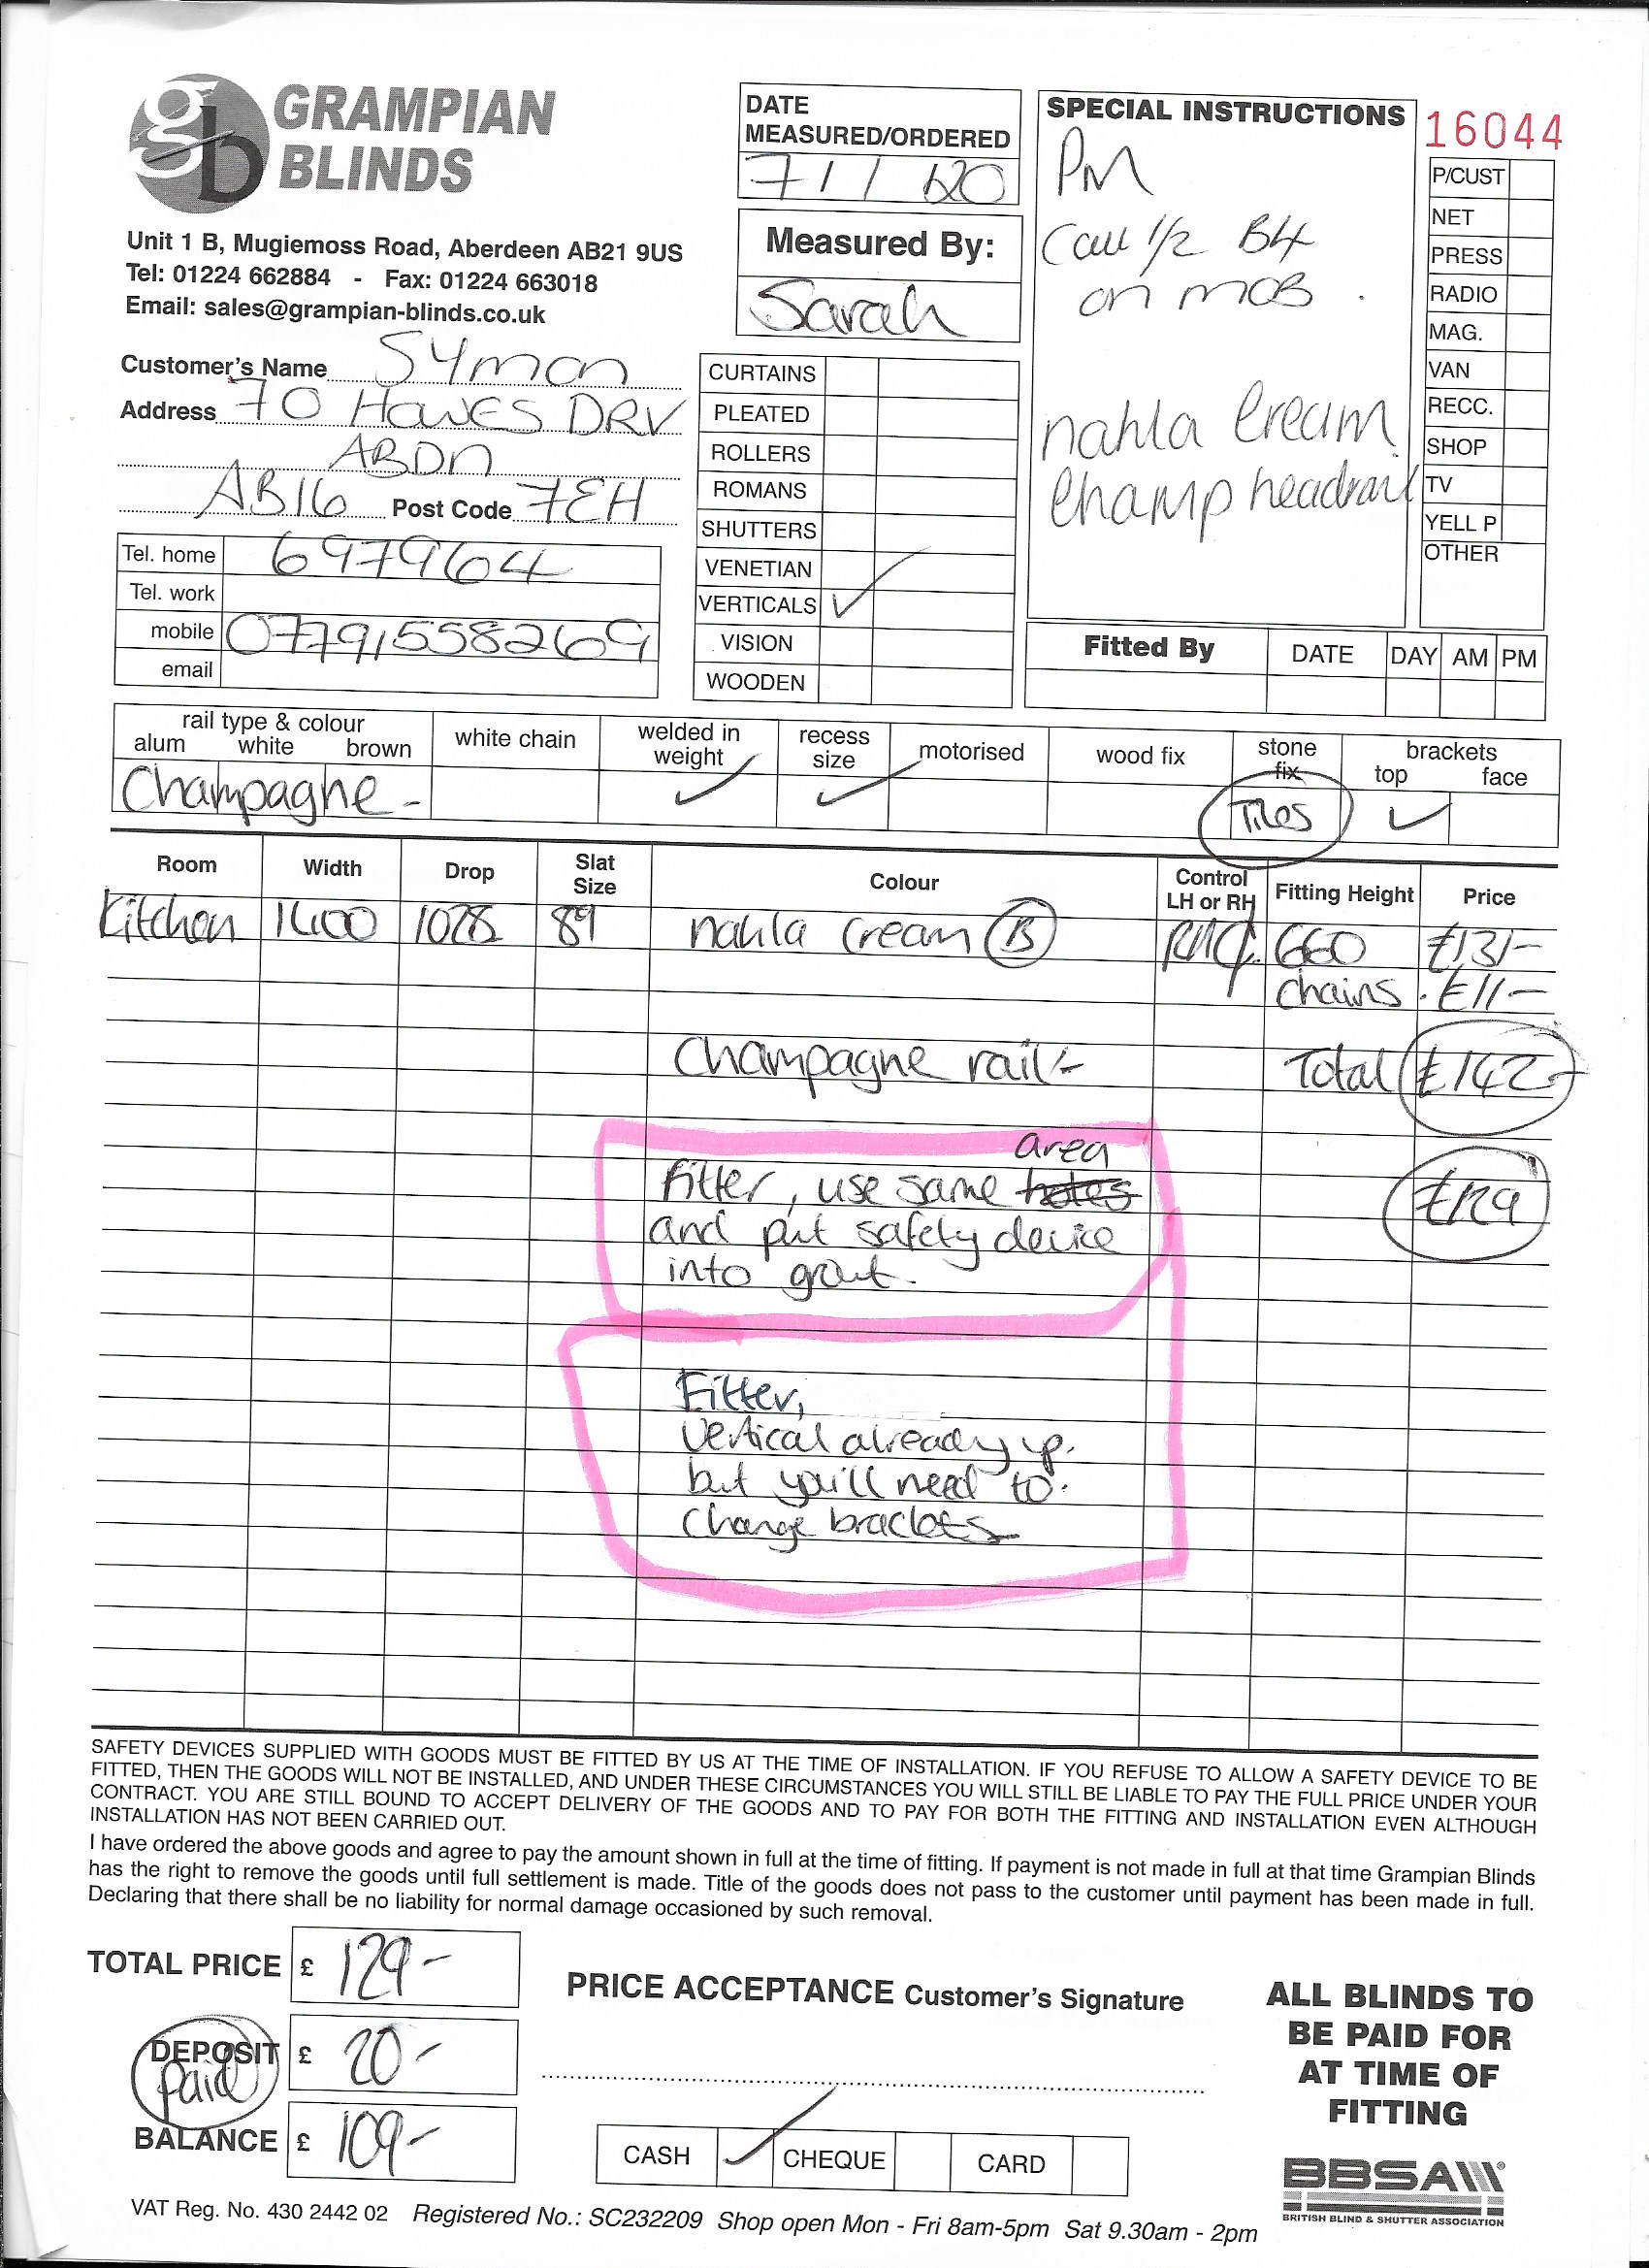 gb GRAMPIAN
BLINDS
Unit 1 B, Mugiemoss Road, Aberdeen AB21 9US
Tel: 01224 662884 - Fax: 01224 663018
Email: sales@grampian-blinds.co.uk
DATE
MEASURED/ORDERED
7/1/20
Measured By:
Sarah
SPECIAL INSTRUCTIONS
PM
Call 1/2 B4
on mob.
nahla cream
champ headrail
16044
P/CUST
NET
PRESS
RADIO
MAG.
VAN
RECC.
SHOP
TV
YELL P
OTHER
Customer's Name Symon
Address 70 Howes DRV
ABDN
AB16 Post Code 7EH
Tel. home 697964
Tel. work
mobile 07791558269
email
CURTAINS
PLEATED
ROLLERS
ROMANS
SHUTTERS
VENETIAN
VERTICALS ✓
VISION
WOODEN
Fitted By DATE DAY AM PM
rail type & colour
alum white brown
Champagne -
white chain
welded in
weight ✓
recess
size ✓
motorised
wood fix
stone
fix
Tiles
brackets
top face
✓
Room Width Drop Slat Size Colour Control LH or RH Fitting Height Price
Kitchen 1400 1028 89 nahla cream B 660 £131-
chains. £11-
Champagne rail - Total £142-
area
Fitter, use same holes £129
and put safety device
into grout.
Fitter,
Vertical already up.
but you'll need to.
change brackets
SAFETY DEVICES SUPPLIED WITH GOODS MUST BE FITTED BY US AT THE TIME OF INSTALLATION. IF YOU REFUSE TO ALLOW A SAFETY DEVICE TO BE
FITTED, THEN THE GOODS WILL NOT BE INSTALLED, AND UNDER THESE CIRCUMSTANCES YOU WILL STILL BE LIABLE TO PAY THE FULL PRICE UNDER YOUR
CONTRACT. YOU ARE STILL BOUND TO ACCEPT DELIVERY OF THE GOODS AND TO PAY FOR BOTH THE FITTING AND INSTALLATION EVEN ALTHOUGH
INSTALLATION HAS NOT BEEN CARRIED OUT.
I have ordered the above goods and agree to pay the amount shown in full at the time of fitting. If payment is not made in full at that time Grampian Blinds
has the right to remove the goods until full settlement is made. Title of the goods does not pass to the customer until payment has been made in full.
Declaring that there shall be no liability for normal damage occasioned by such removal.
TOTAL PRICE £ 129-
DEPOSIT £ 20-
paid
BALANCE £ 109-
PRICE ACCEPTANCE Customer's Signature
CASH ✓ CHEQUE CARD
ALL BLINDS TO
BE PAID FOR
AT TIME OF
FITTING
BBSA
BRITISH BLIND & SHUTTER ASSOCIATION
VAT Reg. No. 430 2442 02 Registered No.: SC232209 Shop open Mon - Fri 8am-5pm Sat 9.30am - 2pm